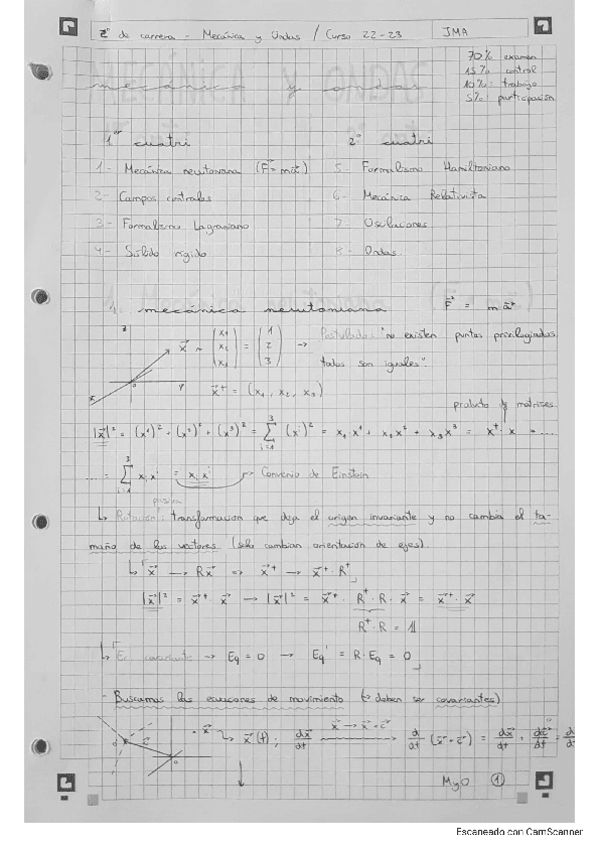 2º de carrera - Mecánica y Ondas / Curso 22-23
JMA
70% examen
15% control
10% trabajo
5% participación
mecánica y ondas
1er cuatri
2º cuatri
1- Mecánica newtoniana (F⃗ = ma⃗)
5- Formalismo Hamiltoniano
2- Campos centrales
6- Mecánica Relativista
3- Formalismo Lagrangiano
7- Oscilaciones
4- Sólido rígido
8- Ondas
1. mecánica newtoniana F⃗ = m a⃗
x⃗ ~ (x₁ x₂ x₃) = (1 2 3) → Postulado: "no existen puntos privilegiados
todos son iguales".
x⃗⁺ = (x₁, x₂, x₃)
producto de matrices
|x⃗|² = (x¹)² + (x²)² + (x³)² = Σ (xⁱ)² = x₁x¹ + x₂x² + x₃x³ = x⃗⁺·x = ...
... = Σ xᵢxⁱ = xᵢxⁱ → Convenio de Einstein
pasiva
↳ Rotación: transformación que deja el origen invariante y no cambia el ta-
maño de los vectores (solo cambian orientación de ejes).
↳ x⃗ → Rx⃗ ⇒ x⃗⁺ → x⃗⁺·R⁺
|x⃗|² = x⃗⁺ x⃗ → |x⃗|² = x⃗⁺·R⁺·R·x⃗ = x⃗⁺·x⃗
R⁺·R = 𝟙
↳ Ec. covariante → Eq = 0 → Eq' = R·Eq = 0
- Buscamos las ecuaciones de movimiento (→ deben ser covariantes)
x⃗ ↳ x⃗(t); dx⃗/dt x⃗ → x⃗ + c⃗ d/dt (x⃗ + c⃗) = dx⃗/dt + dc⃗/dt = d
MyO 1
Escaneado con CamScanner